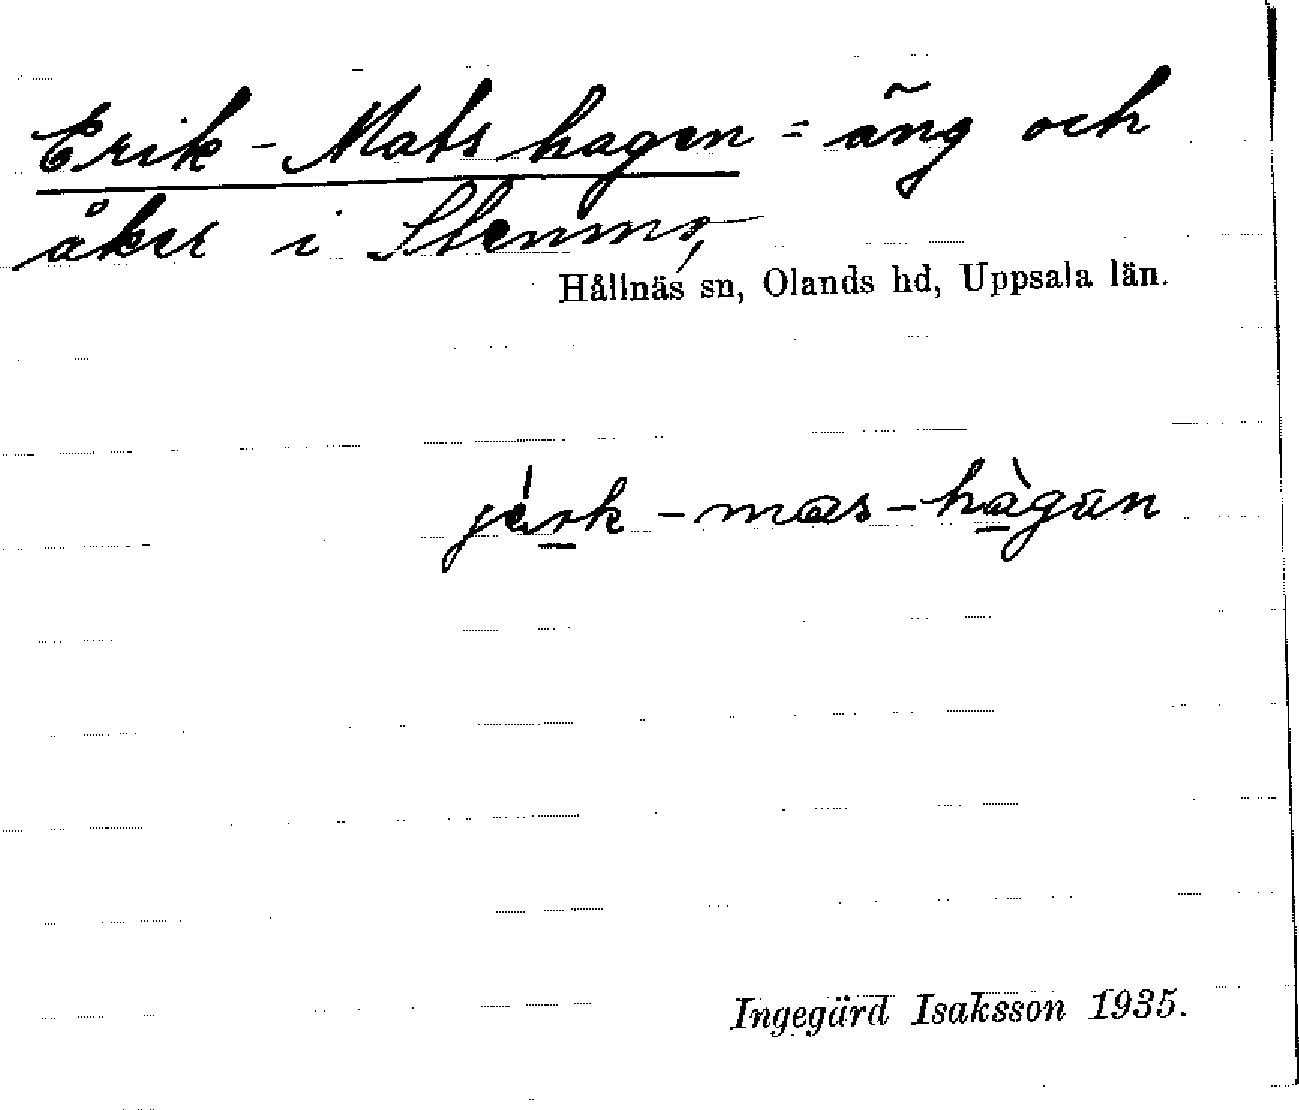 Erik-Mats hagen = äng och
åker i Stenmo,
Hållnäs sn, Olands hd, Uppsala län.
järk-mas-hàgan
Ingegärd Isaksson 1935.